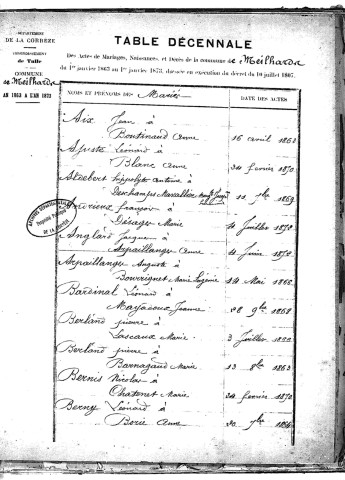 DÉPARTEMENT
DE LA CORRÈZE
ARRONDISSEMENT
de Tulle
COMMUNE
de Meilhards
AN 1863 A L'AN 1872
TABLE DÉCENNALE
Des Actes de Mariages, Naissances, et Décès de la commune de Meilhards
du 1er janvier 1863 au 1er janvier 1873, dressée en exécution du décret du 10 juillet 1807.
NOMS ET PRÉNOMS DES Mariés
DATE DES ACTES
Aix Jean à
Boutinaud Anne 16 avril 1863
Ajuste Léonard à
Blanc Anne 24 février 1870
hippolyte antoine à
Deschamps 1869
françois à
Marie 4 Juillet 1870
Anglard Jacques à
Arpaillanger Anne 4 Juin 1872
Arpaillanger Auguste à
Bourrignet Marie Eugénie 14 Mai 1866
Bardinal Léonard à
Mazaudoux Jeanne 28 9bre 1868
Berland pierre à
Lascaux Marie 3 Juillet
Berland pierre à
Barnagaud Marie 13 8bre 1863
Bernis Nicolas à
Chatenet Marie 24 février 1870
Berny Léonard à
Borie Anne 20